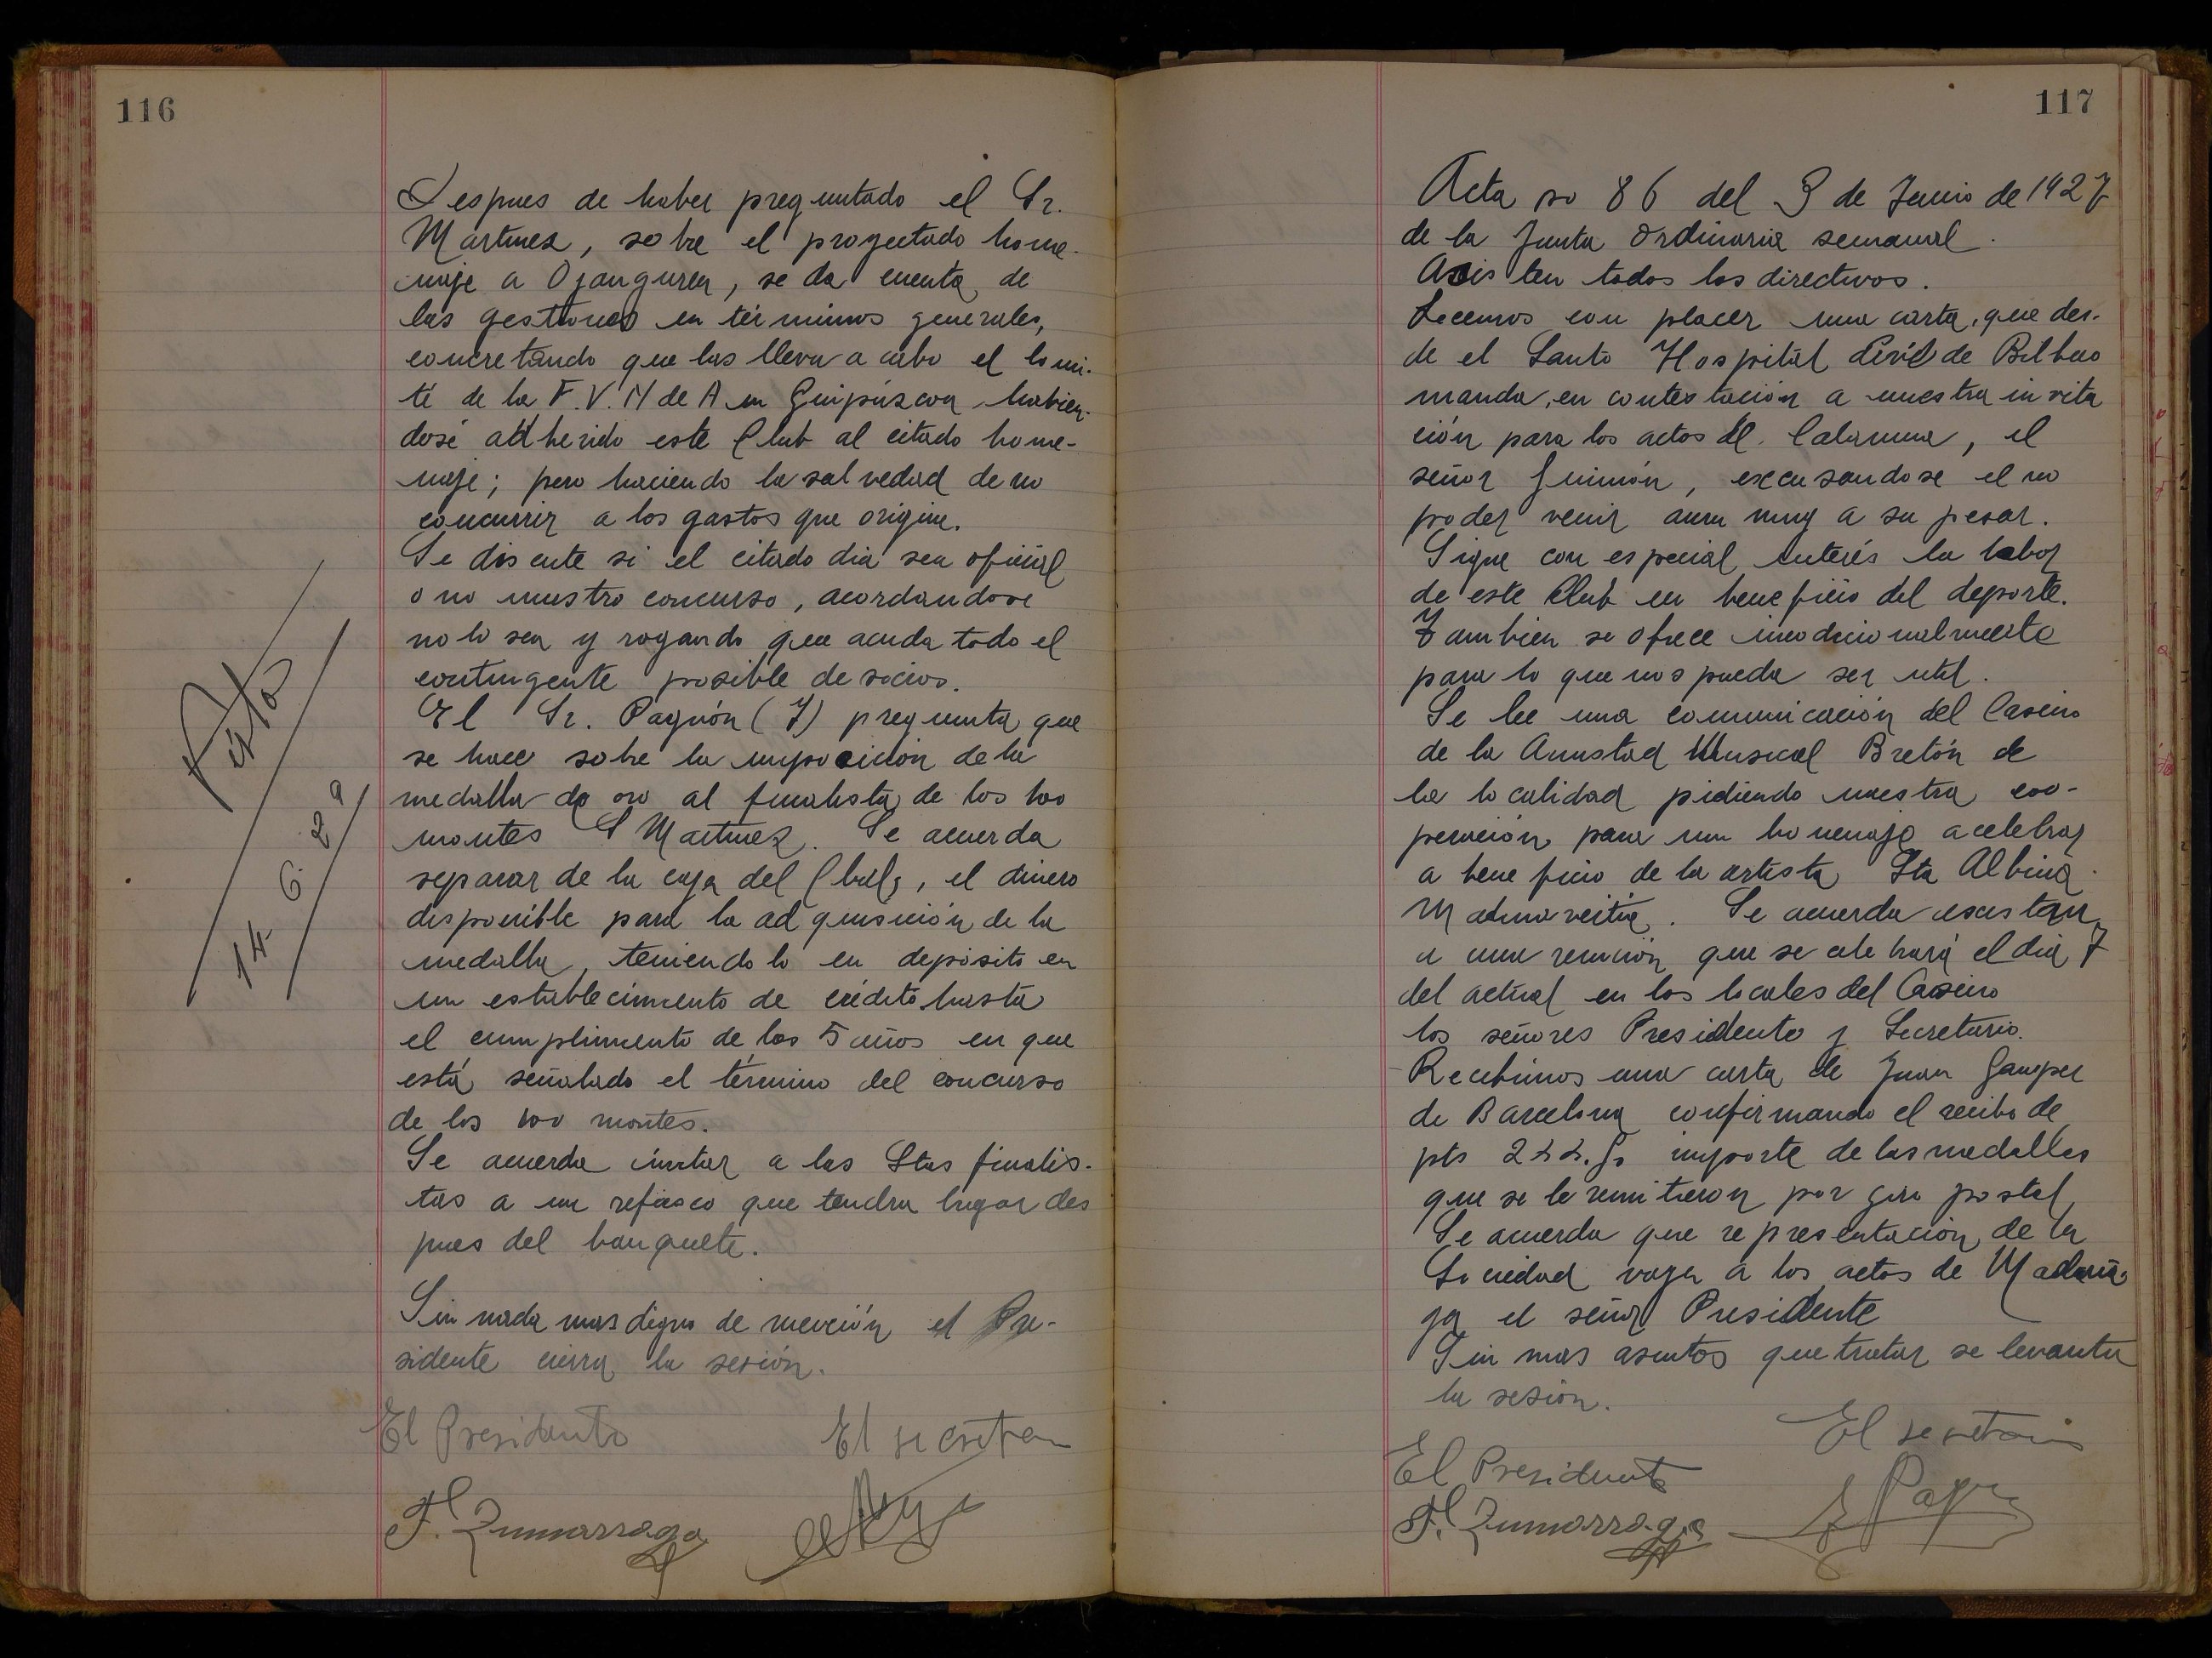 116
Despues de haber preguntado el Sr.
Martinez, sobre el proyectado home-
naje a Ojanguren, se da cuenta de
las gestiones en términos generales,
concretando que las lleva a cabo el Comi-
té de la F.V.N de A en Guipúzcoa habien-
dose adherido este Club al citado home-
naje; pero haciendo la salvedad de no
concurrir a los gastos que origine.
Se discute si el citado dia sea oficial
o no nuestro concurso, acordandose
no lo sea y rogando que acuda todo el
contingente posible de socios.
El Sr. Pagnón (J) pregunta que
se hace sobre la imposición de la
medalla de oro al finalista de los 100
montes S Martinez. Se acuerda
separar de la caja del Club, el dinero
disponible para la adquisición de la
medalla, teniendolo en depósito en
un establecimiento de crédito hasta
el cumplimiento de los 5 años en que
está señalado el término del concurso
de los 100 montes.
Se acuerda invitar a las Stas finalis-
tas a un refresco que tendra lugar des
pues del banquete.
Sin nada mas digno de mención el Pre-
sidente cierra la sesión.
El Presidente El secretario
F. Zumarraga
14 6. 2ª
117
Acta no 86 del 3 de Junio de 1927
de la Junta Ordinaria semanal.
Asisten todos los directivos.
Leemos con placer una carta, que des-
de el Santo Hospital Civil de Bilbao
manda, en contestación a nuestra invita
ción para los actos de Calamua, el
señor Guimón, excusandose el no
poder venir aun muy a su pesar.
Sigue con especial interés la labor
de este Club en beneficio del deporte.
Tambien se ofrece incodicionalmente
para lo que nos pueda ser util.
Se lee una comunicación del Casino
de la Amistad Musical Bretón de
la localidad pidiendo nuestra coo-
peración para un homenaje a celebrar
a beneficio de la artista Sta Albina
Madinaveitia. Se acuerda asistan
a una reunión que se celebrará el dia 7
del actual en los locales del Casino
los señores Presidente y Secretario.
Recibimos una carta de Juan Gamper
de Barcelona confirmando el recibo de
pts importe de las medallas
que se le remitieron por giro postal
Se acuerda que representación de la
Sociedad vaya a los actos de Madaria-
ga el señor Presidente
Sin mas asuntos que tratar se levanta
la sesión.
El secretario
El Presidente
F. Zumarraga